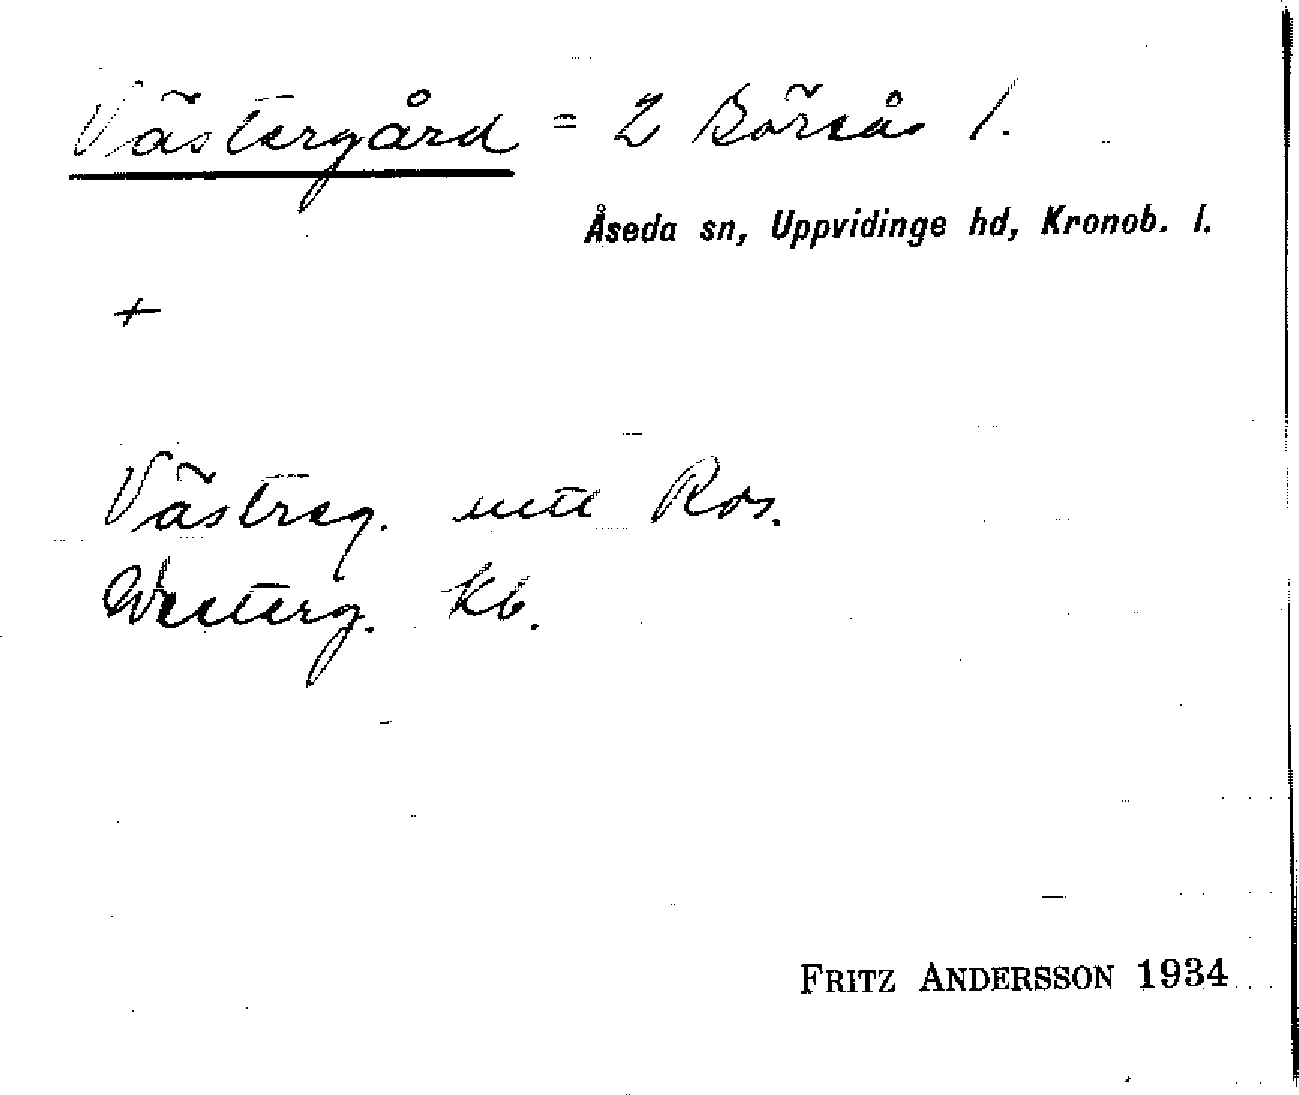 Västergård = 2 Börsås 1.
Åseda sn, Uppvidinge hd, Kronob. l.
+
Västreg. uttl Ros.
Westerg. Kb.
FRITZ ANDERSSON 1934